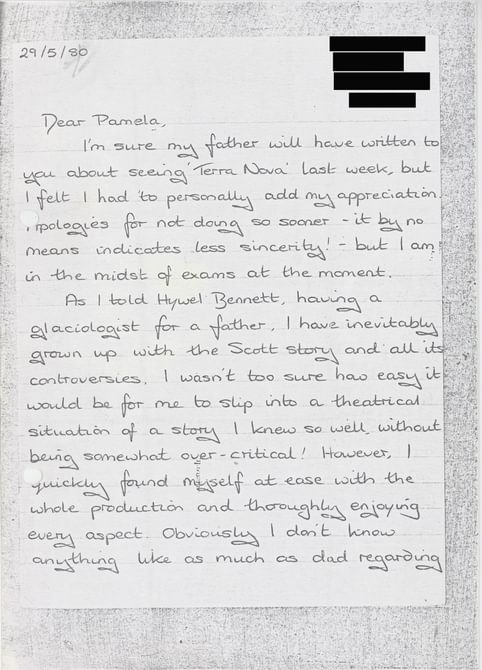 29/5/80
Dear Pamela,
I'm sure my father will have written to
you about seeing 'Terra Nova' last week, but
I felt I had to personally add my appreciation.
pologies for not doing so sooner - it by no
means indicates less sincerity! - but I am
in the midst of exams at the moment.
As I told Hywel Bennett, having a
glaciologist for a father, I have inevitably
grown up with the Scott story and all its
controversies. I wasn't too sure how easy it
would be for me to slip into a theatrical
situation of a story I knew so well, without
being somewhat over-critical! However, I
quickly found myself at ease with the
whole production and thoroughly enjoying
every aspect. Obviously I don't know
anything like as much as dad regarding